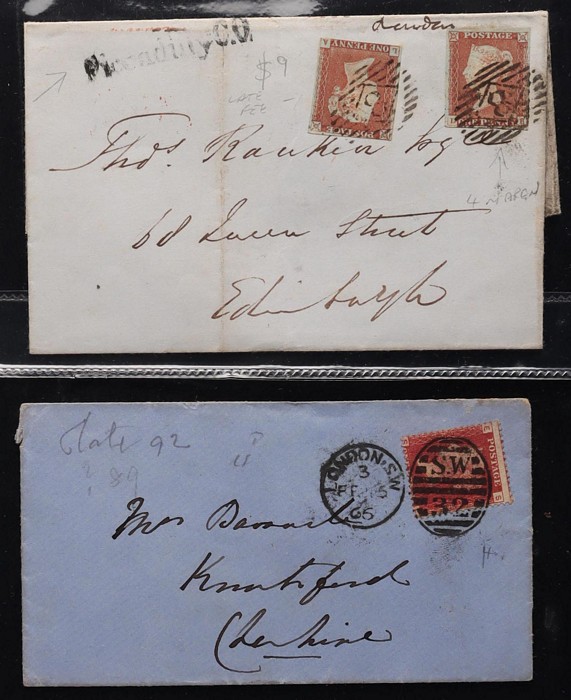 Piccadilly C.O
London
$9
LATE FEE
ONE PENNY
POSTAGE
ONE PENNY
18
Thos. Rankin Esq
4 MARGN
68 Queen Street
Edinburgh
Plate 92
? 89
LONDON·SW
3
FE 15
65
SW
32
POSTAGE
S
H.
Mrs
Knutsford
Cheshire